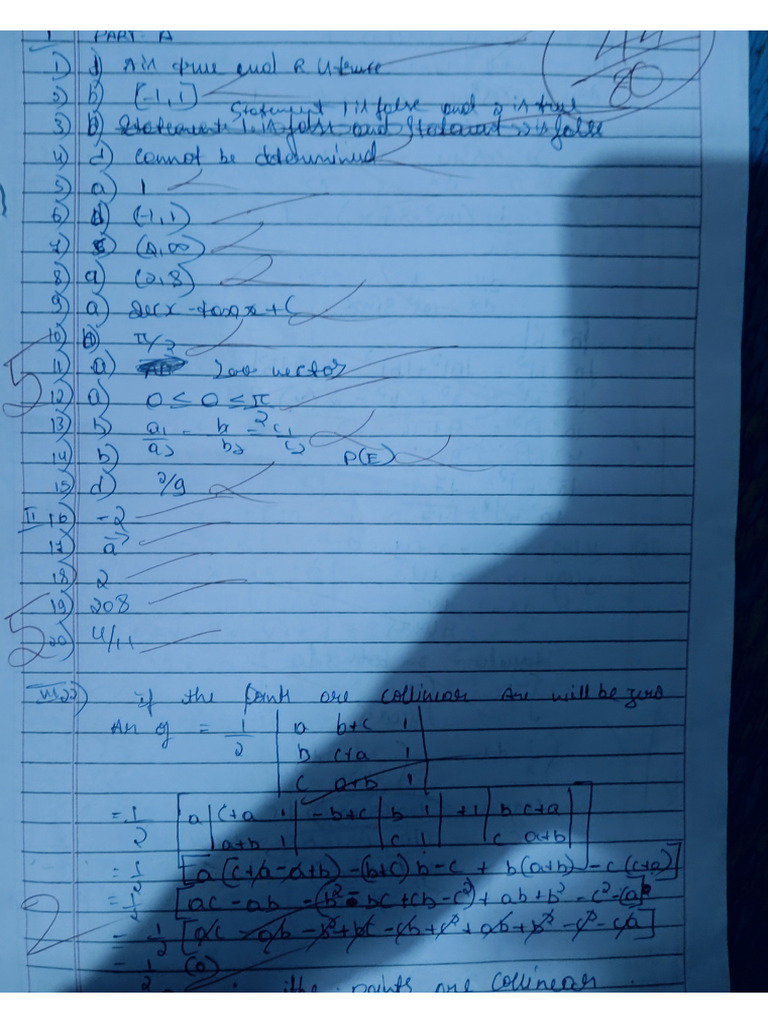 I PART - A
1) d) A is true and R is false
2) b) [-1, 1]
Statement 1 is false and 2 is true
3) b) Statement 1 is false and Statement 2 is false
4) d) cannot be determined
5) a) 1
6) d) (-1, 1)
7) (0, ∞)
8) a) (2, 8)
9) a) sec x - tan x + C
10) b) π/2
11) a) zero vector
12) a) 0 ≤ θ ≤ π
13) b) a1/a2 = b1/b2 = c1/c2
14) b) P(E)
15) d) 2/9
II 16) -2
17) a
18) 2
19) 208
20) 4/11
80
5
5
III 22) if the points are collinear are will be zero
= 1/2 | a b+c 1 |
| b c+a 1 |
| c a+b 1 |
= 1/2 [ a | c+a 1 | - b+c | b 1 | + 1 | b c+a | ]
| a+b 1 | | c 1 | | c a+b |
= 1/2 [a (c+a - a+b) - (b+c) b - c + b(a+b) - c (c+a)]
= 1/2 [ac - ab - (b² - bc + cb - c²) + ab + b² - c² - ca]
= 1/2 [ac - ab - b² + bc - cb + c² + ab + b² - c² - ca]
= 1/2 (0)
2
the points are collinear